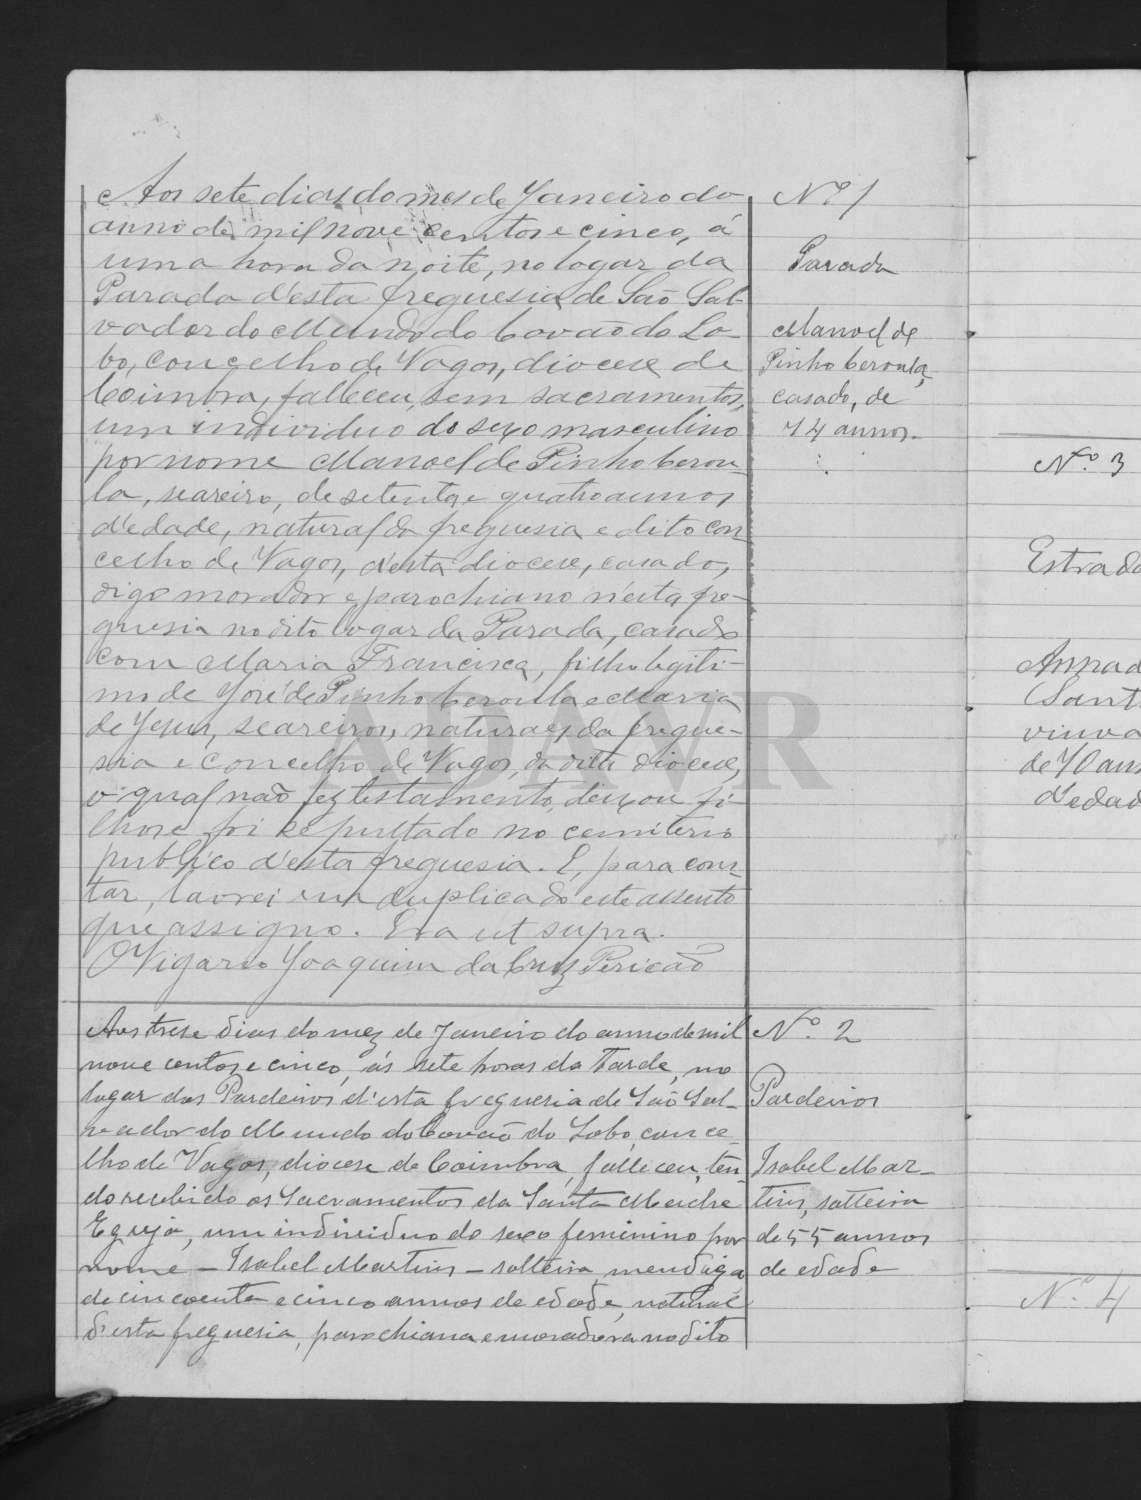 Nº 1
Parada
Manoel de
Pinho Ceroula,
casado, de
74 annos.
Aos sete dias do mes de Janeiro do
anno de mil nove centos e cinco, á
uma hora da noite, no logar da
Parada d'esta freguesia de São Sal-
vador do Mundo do Covão do Lo-
bo, concelho de Vagos, diocese de
Coimbra, falleceu, sem sacramentos,
um individuo do sexo masculino
por nome Manoel de Pinho Cerou-
la, seareiro, de setenta e quatro annos
d'edade, natural da freguesia e dito con-
celho de Vagos, d'esta diocese, casado,
digo morador e parochiano n'esta fre-
guesia no dito logar da Parada, casado
com Maria Francisca, filho legiti-
mo de José de Pinho Ceroula e Maria
de Jesus, seareiros, naturaes da fregue-
sia e concelho de Vagos, da dita diocese,
o qual não fez testamento, deixou fi-
lhos e foi sepultado no cemiterio
publico d'esta freguesia. E, para cons-
tar, lavrei em duplicado este assento
que assigno. Era ut supra.
O Vigario Joaquim da Cruz Pericão
Nº. 2
Pardeiros
Isabel Mar-
tins, solteira
de 55 annos
de edade
Aos trese dias do mez de Janeiro do anno de mil
nove centos e cinco, ás sete horas da tarde, no
logar dos Pardeiros d'esta freguesia de São Sal-
vador do Mundo do Covão do Lobo, conce-
lho de Vagos, diocese de Coimbra, falleceu, ten-
do recebido os Sacramentos da Santa Madre
Egreja, um individuo do sexo feminino por
nome - Isabel Martins - solteira, mendiga,
de cincoenta e cinco annos de edade, natural
d'esta freguesia, parochiana e moradora no dito
Nº. 3
Estrada
Amad
(Sant
viuva
de 70 ann
d'edad
Nº. 4
ADAVR